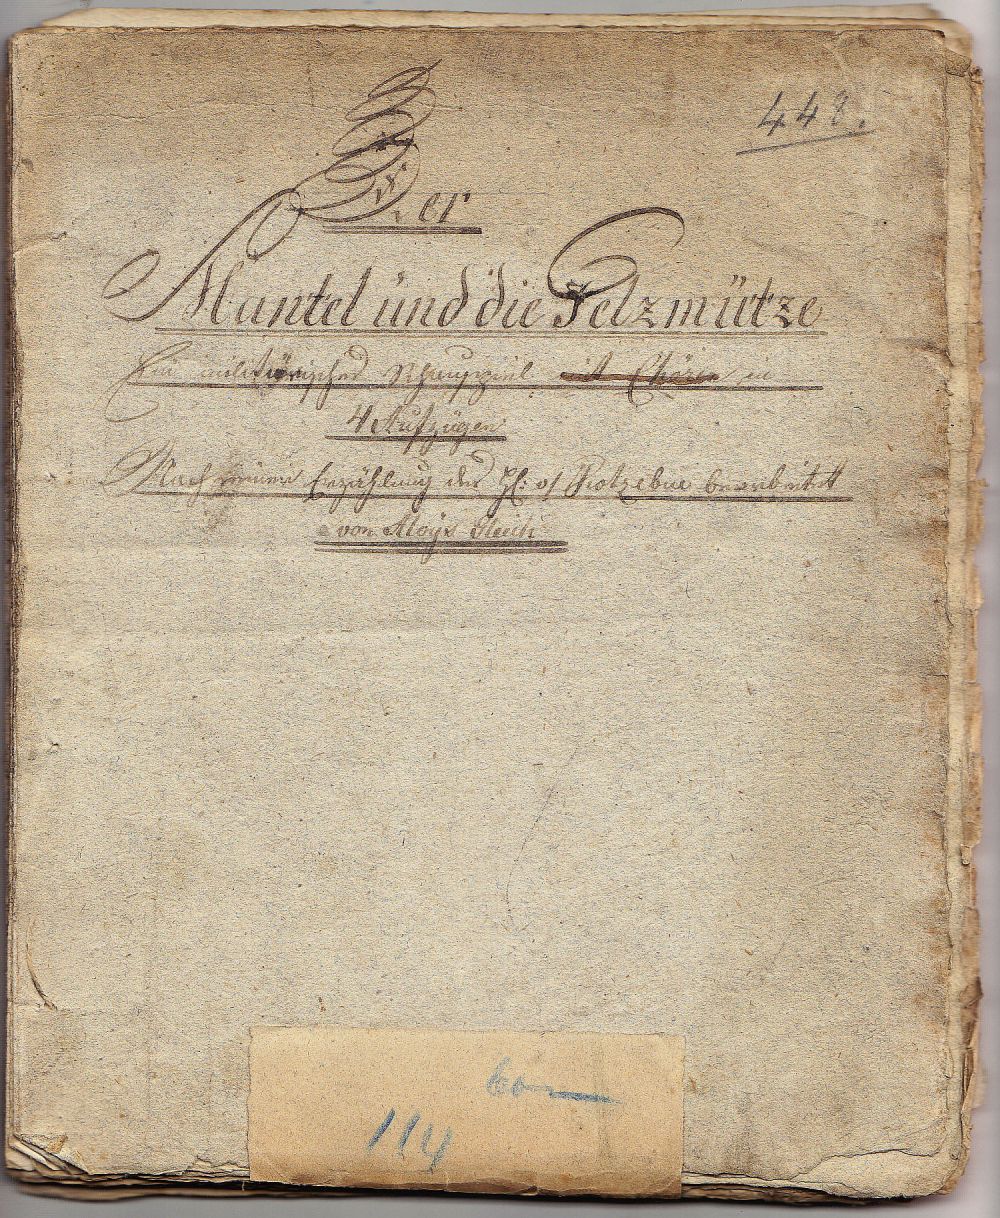 448.
Der
Mantel und die Pelzmütze
Ein militärisches Schauspiel mit Chören in
4 Aufzügen
Nach einer Erzählung des H: v Kotzebue bearbeitet
von Aloys Gleich
114